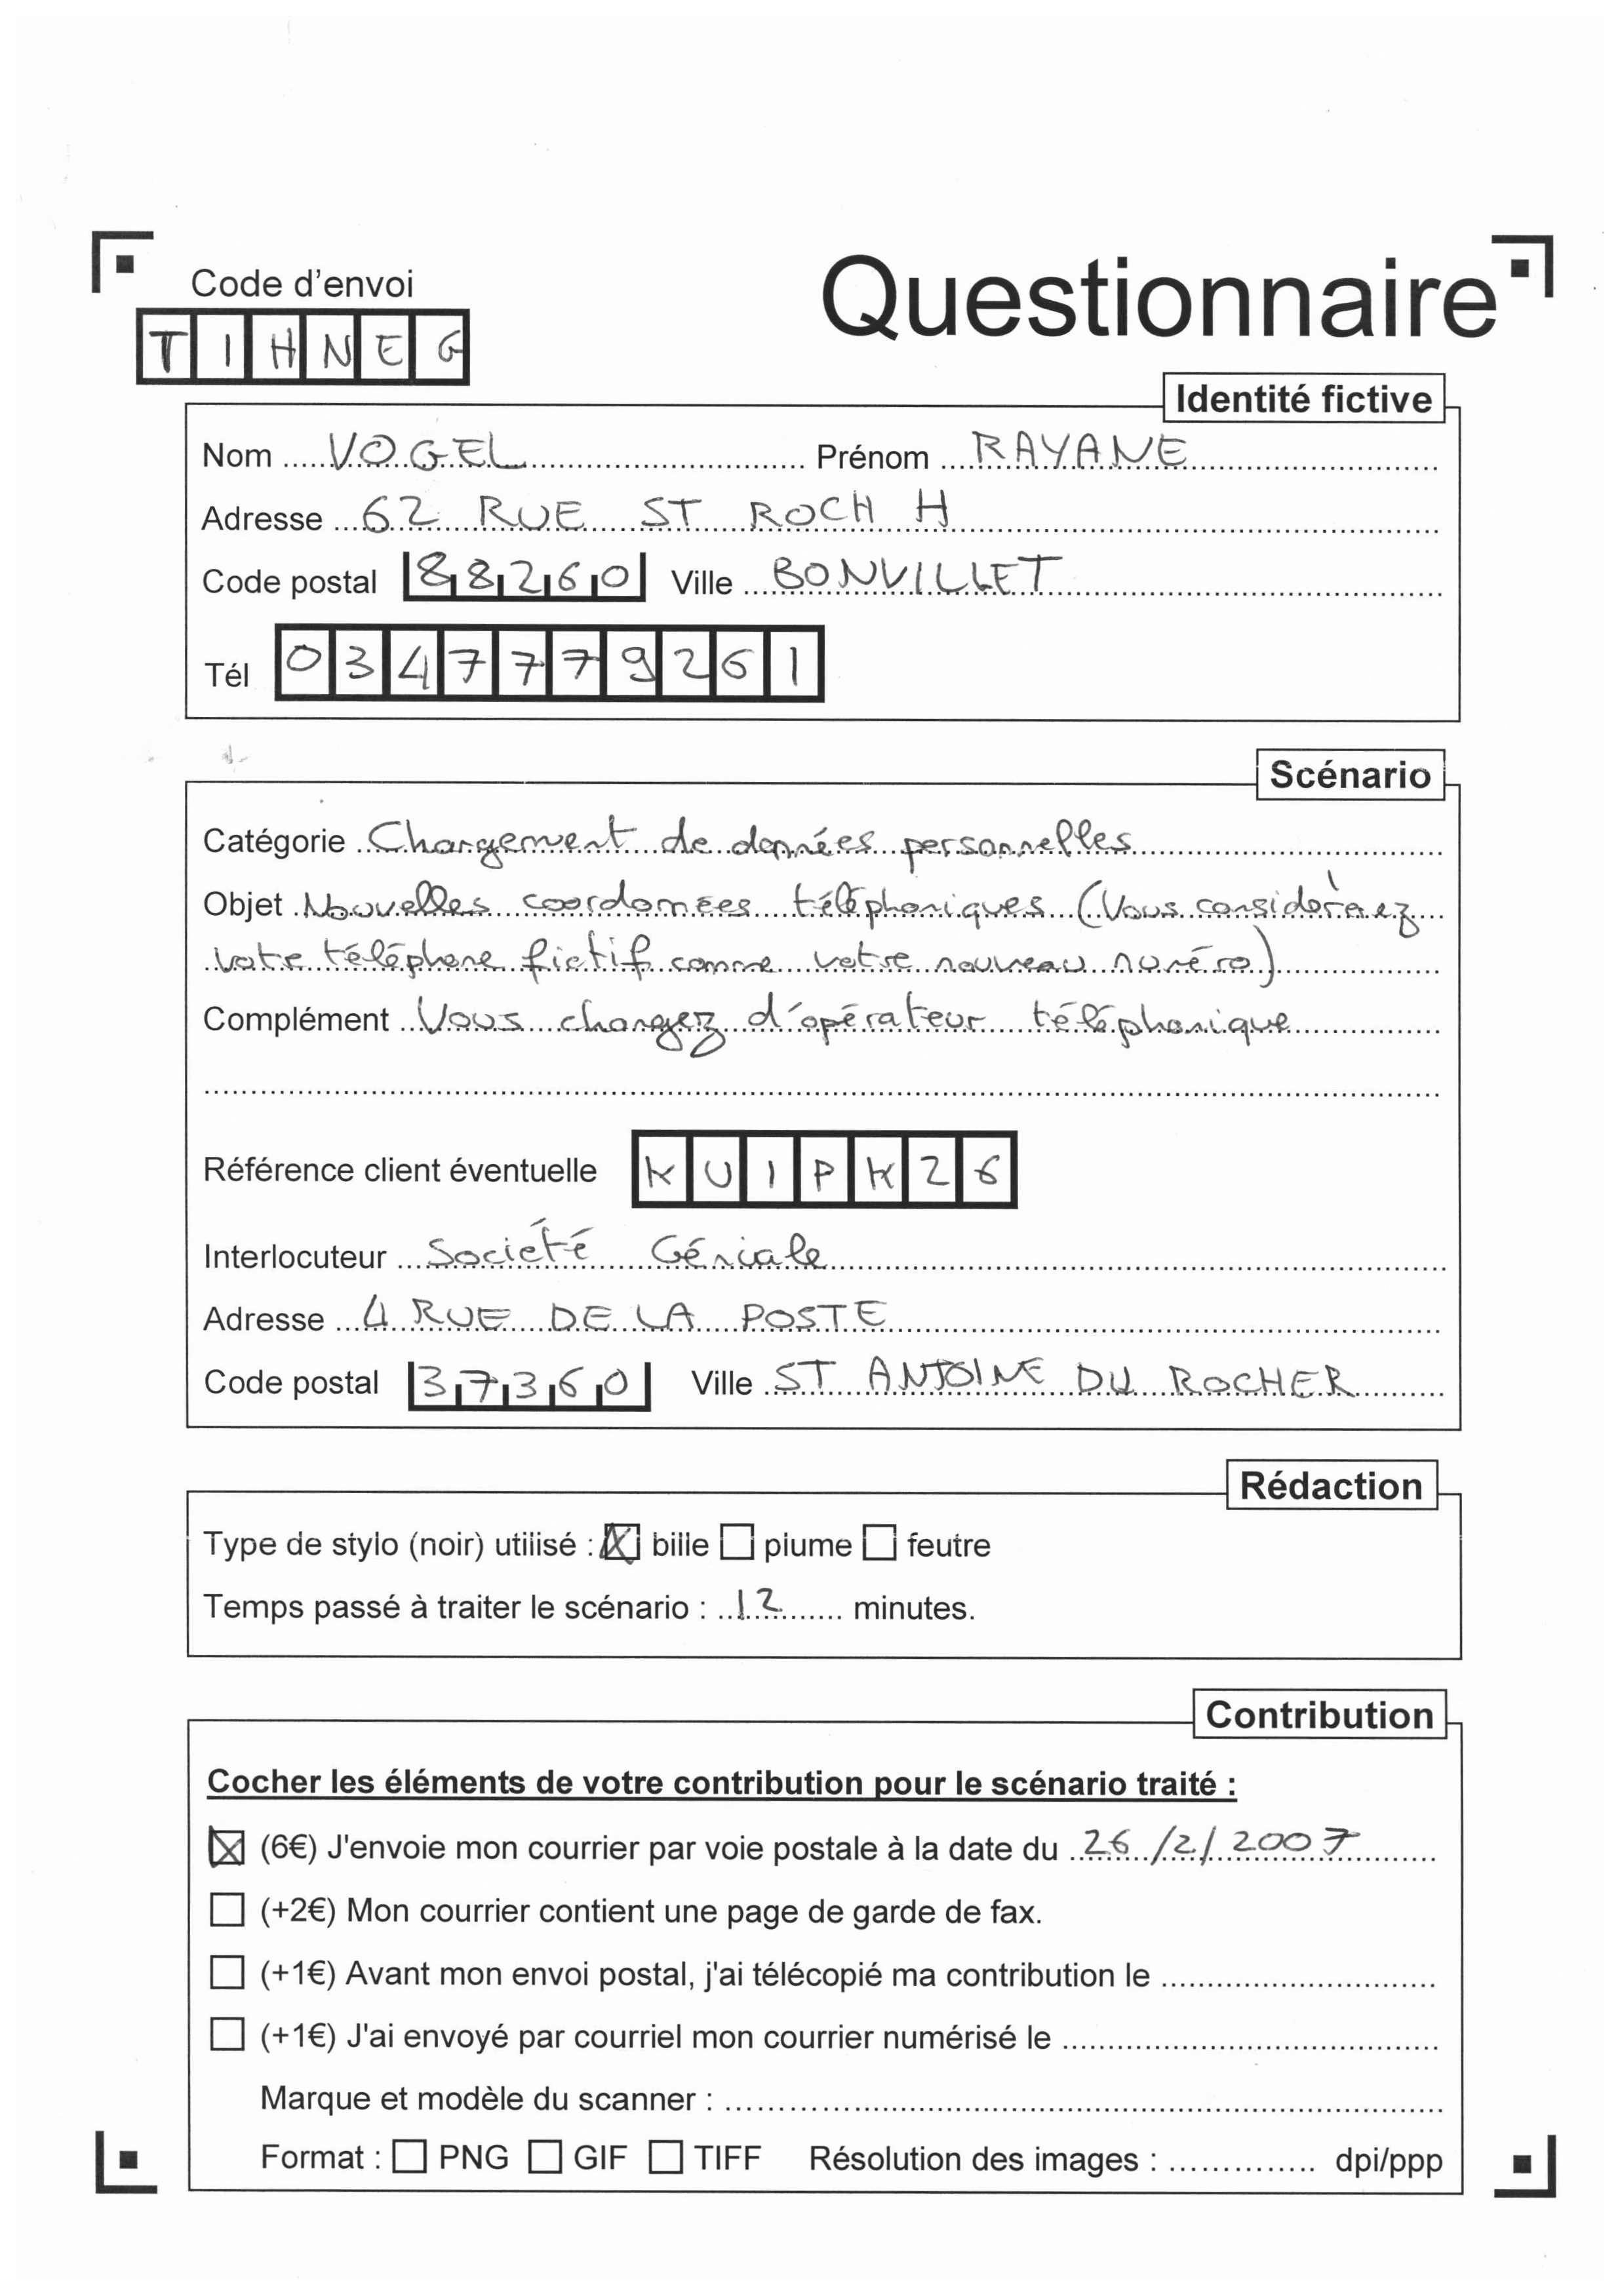 Code d'envoi
Questionnaire
TIHNEG
Identité fictive
Nom VOGEL Prénom RAYANE
Adresse 62 RUE ST ROCH H
Code postal 88260 Ville BONVILLET
Tél 0347779261
Scénario
Catégorie Changement de données personnelles
Objet Nouvelles coordonnées téléphoniques (Vous considèrerez
votre téléphone fictif comme votre nouveau numéro)
Complément Vous changez d'opérateur téléphonique
Référence client éventuelle KUIPK26
Interlocuteur Société Géniale
Adresse 4 RUE DE LA POSTE
Code postal 37360 Ville ST ANTOINE DU ROCHER
Rédaction
Type de stylo (noir) utilisé : bille plume feutre
Temps passé à traiter le scénario : 12 minutes.
Contribution
Cocher les éléments de votre contribution pour le scénario traité :
(6€) J'envoie mon courrier par voie postale à la date du 26/2/2007
(+2€) Mon courrier contient une page de garde de fax.
(+1€) Avant mon envoi postal, j'ai télécopié ma contribution le
(+1€) J'ai envoyé par courriel mon courrier numérisé le
Marque et modèle du scanner :
Format : PNG GIF TIFF Résolution des images : dpi/ppp